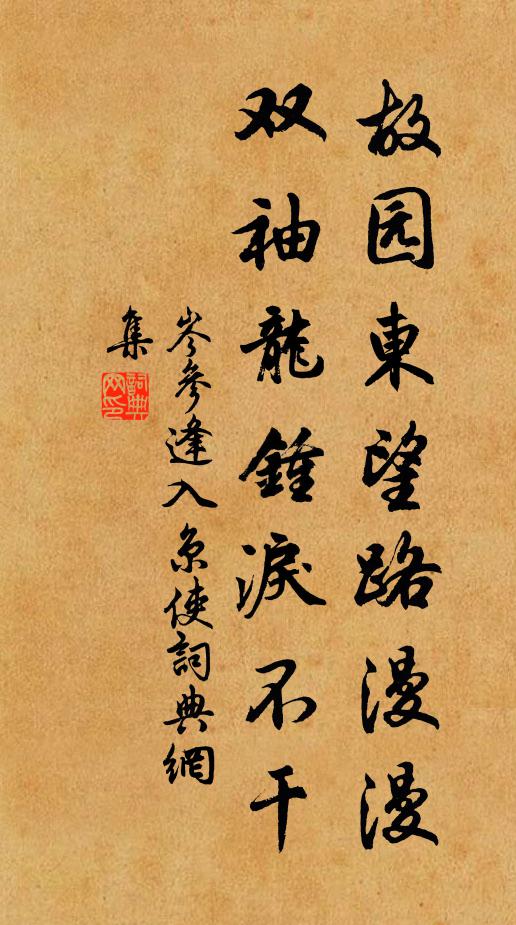 故园東望路漫漫
双袖龍鍾淚不干
岑參逢入京使詞典網
集
詞典
网印